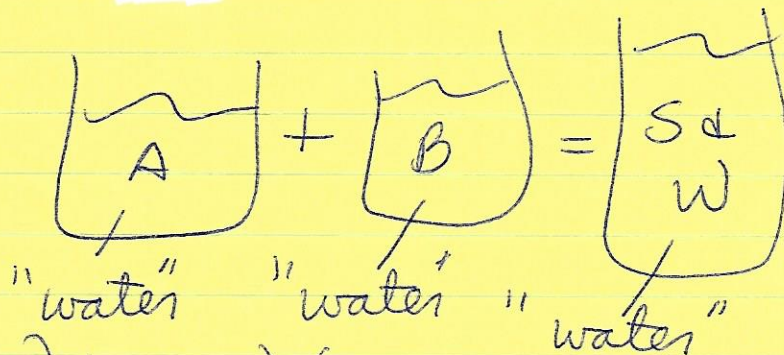 A + B = S &
W
"water" "water" "water"